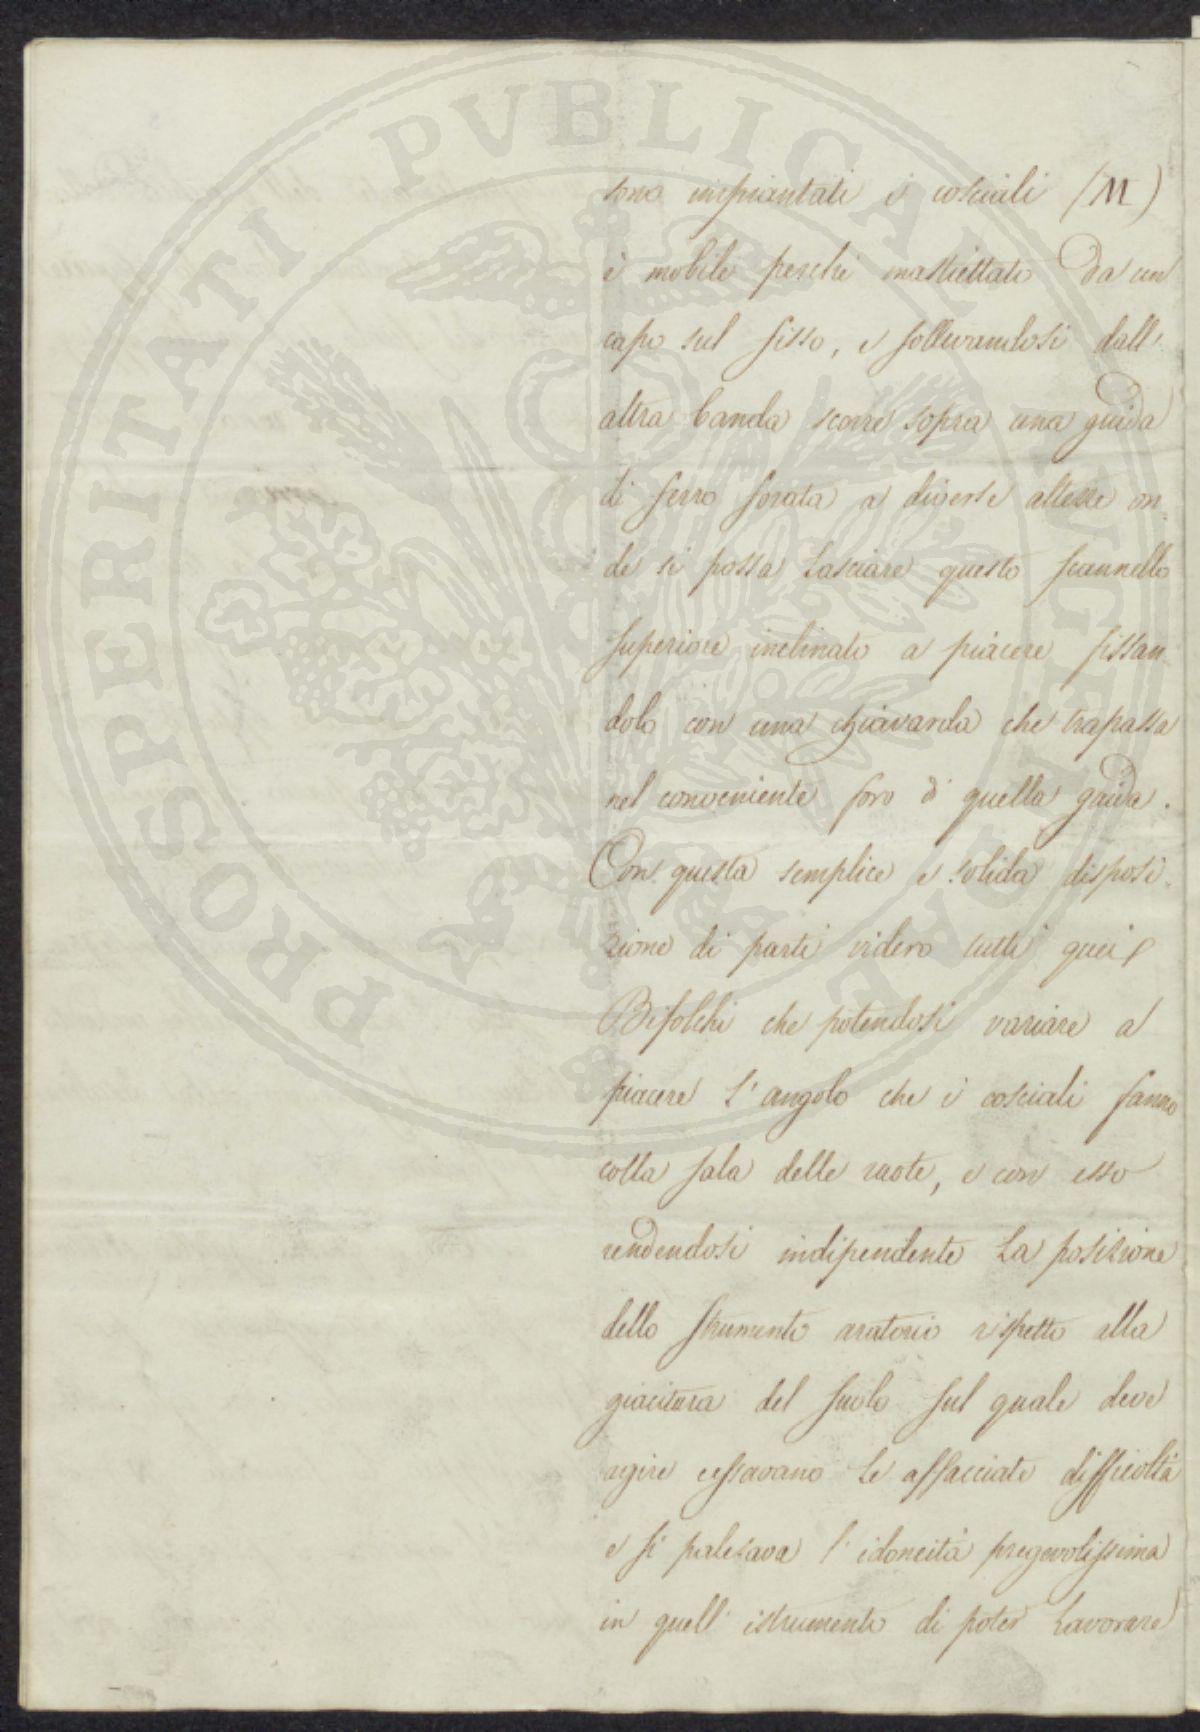 PROSPERITATI PVBLICAE AVGENDAE
sono impiantati i cosciali (M)
è mobile perchè mastiettato da un
capo sul fisso, e sollevandosi dall'
altra banda scorre sopra una guida
di ferro forata a diverse altezze on-
de si possa lasciare questo scannello
superiore inclinato a piacere fissan-
dolo con una chiavarda che trapassa
nel conveniente foro di quella guida.
Con questa semplice e solida disposi-
zione di parti videro tutti quei
Bifolchi che potendosi variare a
piacere l'angolo che i cosciali fanno
colla sala delle ruote, e con esso
rendendosi indipendente la posizione
dello strumento aratorio rispetto alla
giacitura del suolo sul quale deve
agire cessavano le affacciate difficoltà
e si palesava l'idoneità pregevolissima
in quell'istrumento di poter lavorare